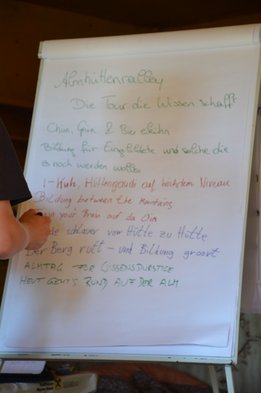 Almhüttenralley
Die Tour die Wissen schafft
Bildung für Eingebildete und solche die
es noch werden wollen
1-Kuh, Hüttengaudi auf höchstem Niveau
Bildung between the Mountains
your Brain auf da Oim
schlauer von Hütte zu Hütte
Der Berg ruft - und Bildung groovt
ALMTAG FÜR WISSENSDURSTIGE
HEUT GEHT'S RUND AUF DER ALM